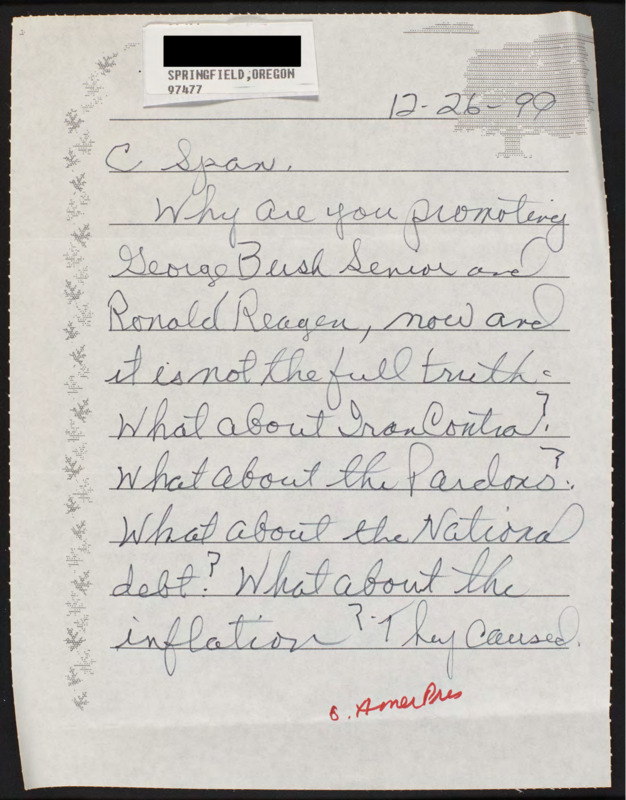 SPRINGFIELD, OREGON
97477
12-26-99
C Span.
Why are you promoting
George Bush Senior and
Ronald Reagen, now and
it is not the full truth-
What about Iran Contra?
What about the Pardons?
What about the National
debt? What about the
inflation? They caused.
AmerPres